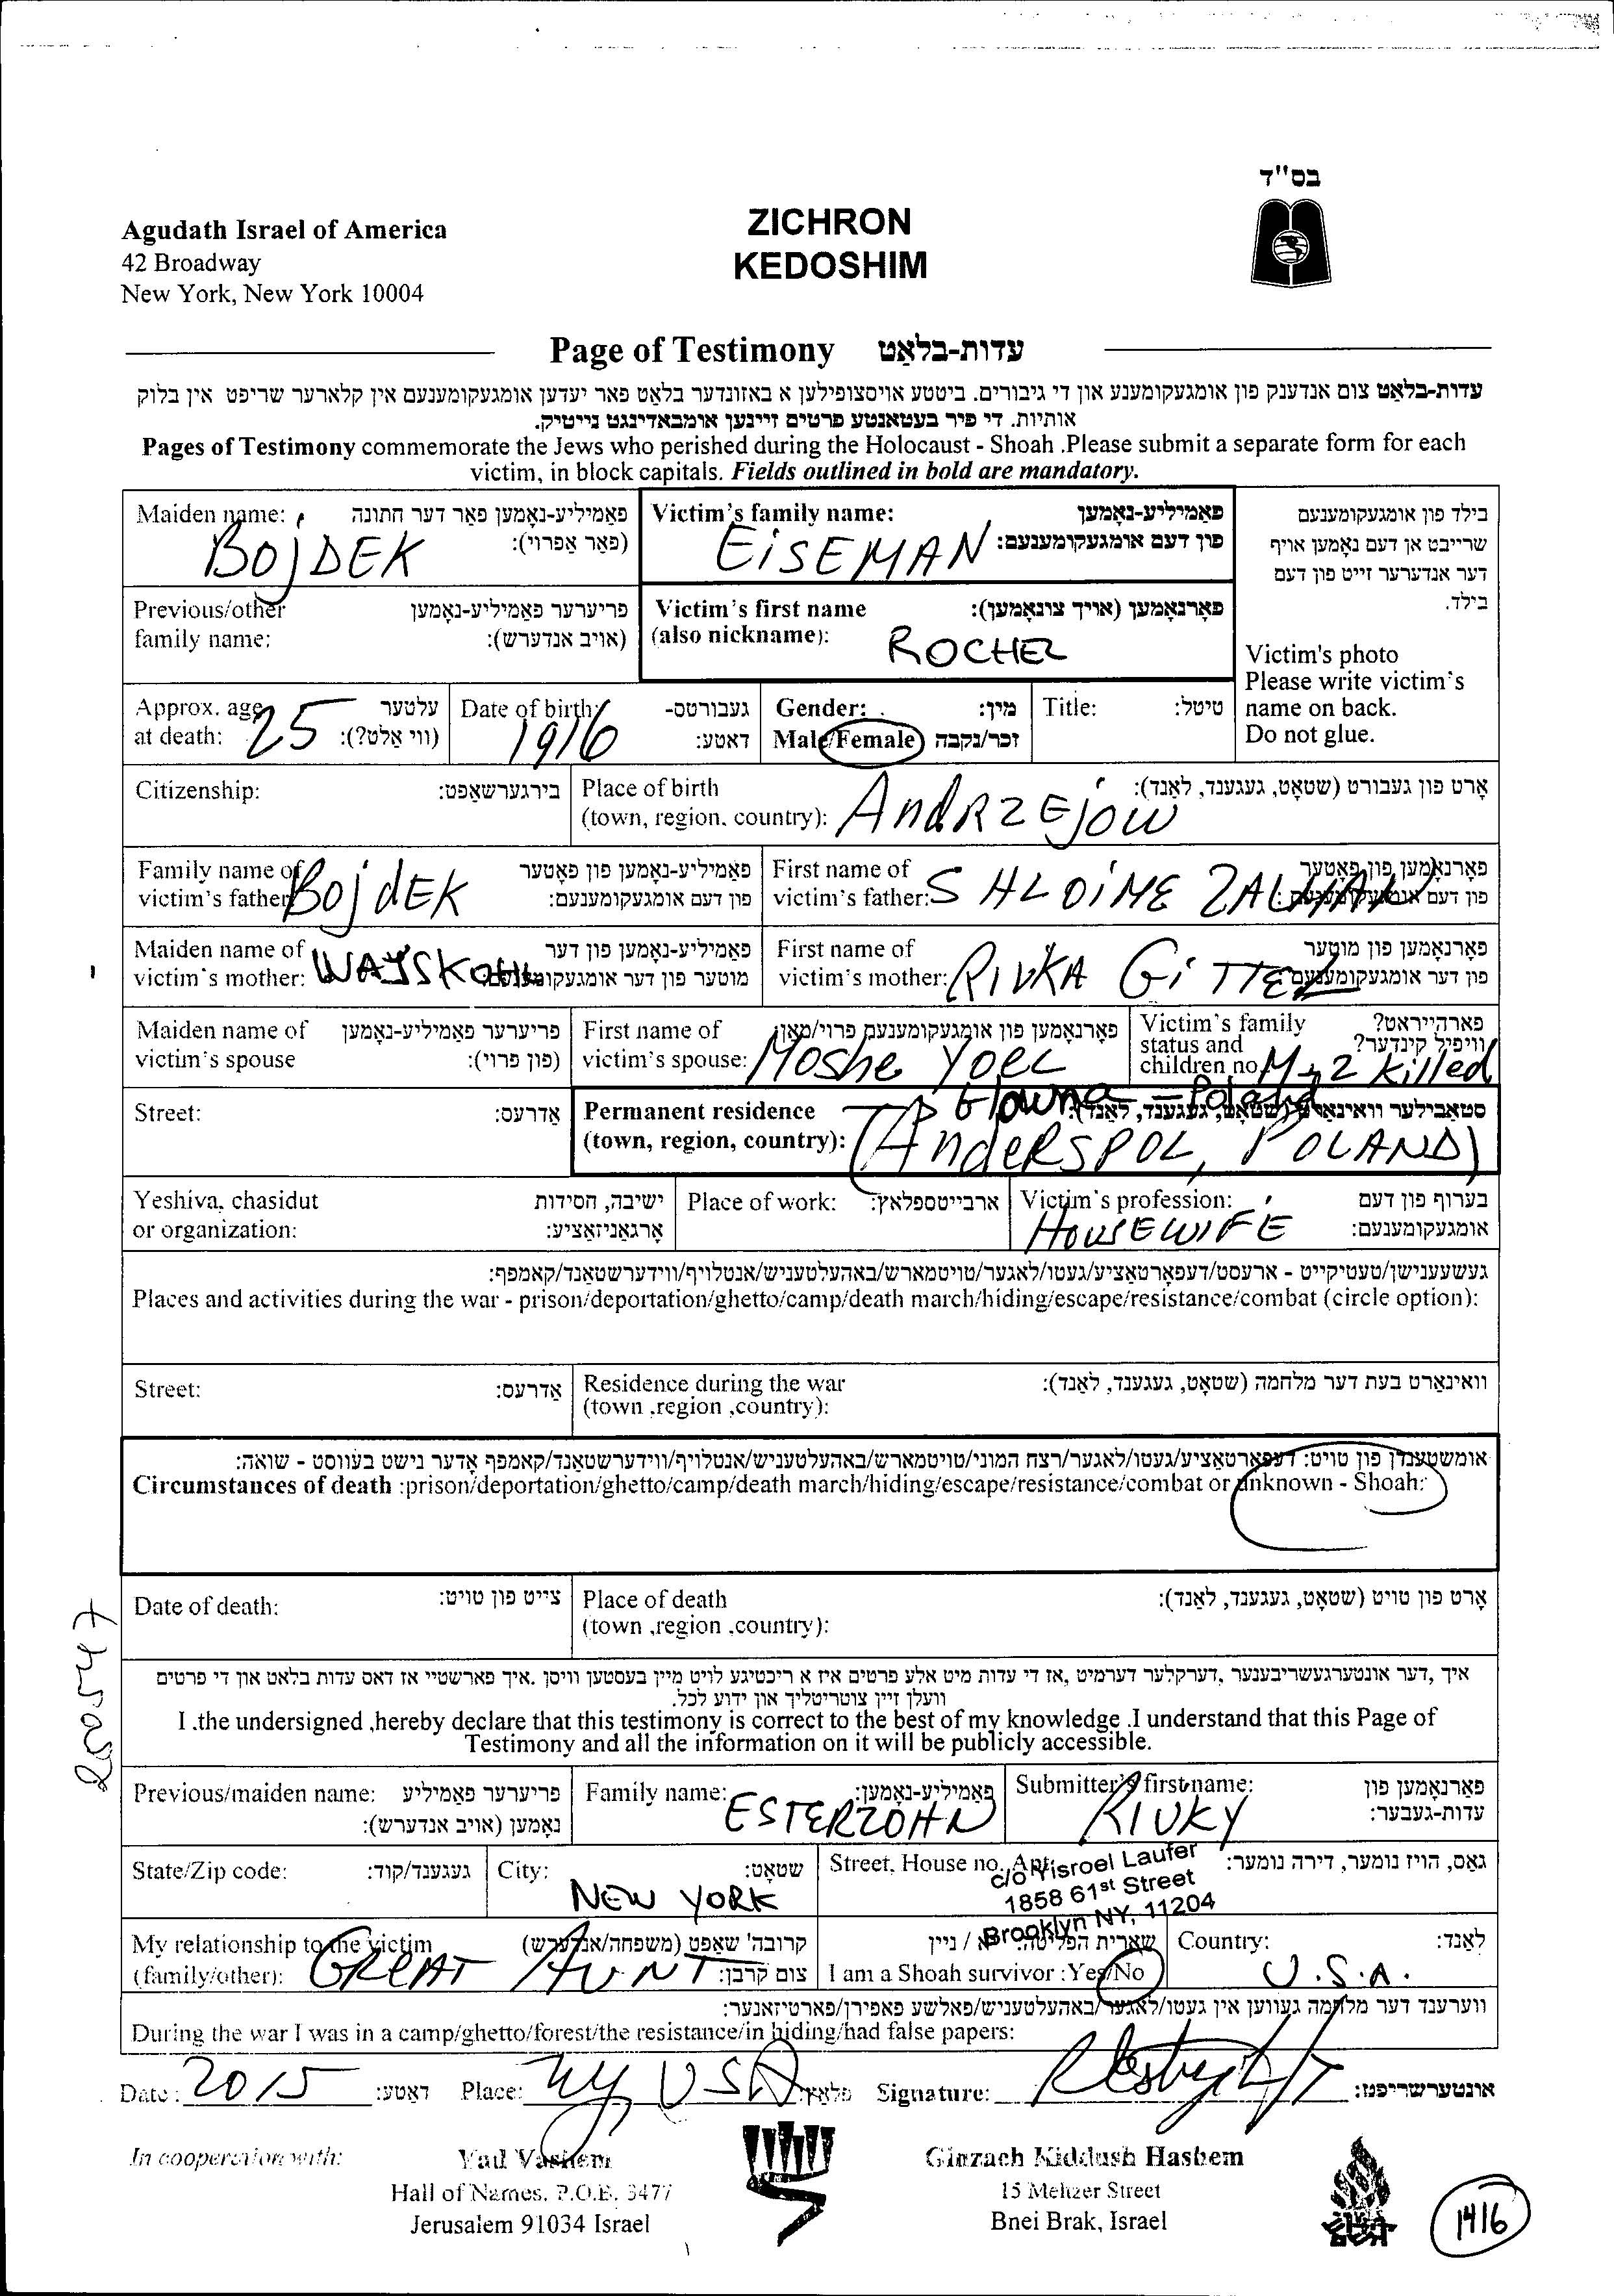 בס"ד
Agudath Israel of America
42 Broadway
New York, New York 10004
ZICHRON
KEDOSHIM
Page of Testimony עדות-בלאַט
עדות-בלאַט צום אנדענק פון אומגעקומענע און די גיבורים. ביטטע אויסצופילען א באזונדער בלאַט פאר יעדען אומגעקומענעם אין קלארער שריפט אין בלוק
אותיות. די פיר בעטאָנטע פרטים זיינען אומבאדינגט נייטיק.
Pages of Testimony commemorate the Jews who perished during the Holocaust - Shoah .Please submit a separate form for each
victim, in block capitals. Fields outlined in bold are mandatory.
Maiden name: פאַמיליע-נאָמען פאַר דער חתונה
(פאַר אַפרוי):
BOJDEK
Victim's family name: פאַמיליע-נאָמען
פון דעם אומגעקומענעם:
EISEMAN
בילד פון אומגעקומענעם
שרייבט אן דעם נאָמען אויף
דער אנדערער זייט פון דעם
בילד.
Victim's photo
Please write victim's
name on back.
Do not glue.
Previous/other פריערער פאַמיליע-נאָמען
family name: (אויב אנדערש):
Victim's first name פאָרנאָמען (אויך צונאָמען):
(also nickname):
ROCHEL
Approx. age עלטער
at death: 25 (ווי אַלט?):
Date of birth: געבורטס-
דאטע:
1916
Gender: מין:
Male/Female זכר/נקבה
Title: טיטל:
Citizenship: בירגערשאַפט:
Place of birth אָרט פון געבורט (שטאָט, געגענד, לאַנד):
(town, region, country): ANDRZEJOW
Family name of פאַמיליע-נאָמען פון פאָטער
victim's father: פון דעם אומגעקומענעם:
BOjdEK
First name of פאָרנאָמען פון פאָטער
victim's father: פון דעם אומגעקומענעם:
SHLOIME ZALMAN
Maiden name of פאַמיליע-נאָמען פון דער
victim's mother: מוטער פון דער אומגעקומענעם:
First name of פאָרנאָמען פון מוטער
victim's mother: פון דער אומגעקומענעם:
RIVKA GITTEL
Maiden name of פריערער פאַמיליע-נאָמען
victim's spouse (פון פרוי):
First name of פאָרנאָמען פון אומגעקומענעם פרוי/מאַן
victim's spouse: Moshe Yoel
Victim's family פארהייראט?
status and וויפיל קינדער?
children no. M + 2 killed
Street: אַדרעס:
Permanent residence סטאַבילער וואוינאָרט (שטאָט, געגענד, לאַנד):
Glowna - Poland
(town, region, country): (ANDERSPOL, POLAND)
Yeshiva, chasidut ישיבה, חסידות
or organization: אָרגאַניזאַציע:
Place of work: ארבייטספלאץ:
Victim's profession: בערוף פון דעם
אומגעקומענעם:
HOUSEWIFE
געשעענישן/טעטיקייט - ארעסט/דעפאָרטאַציע/געטו/לאַגער/טויטמארש/באהעלטעניש/אנטלויף/ווידערשטאַנד/קאמפף:
Places and activities during the war - prison/deportation/ghetto/camp/death march/hiding/escape/resistance/combat (circle option):
Street: אַדרעס:
Residence during the war וואוינאַרט בעת דער מלחמה (שטאָט, געגענד, לאַנד):
(town ,region ,country):
אומשטענדן פון טויט: דעפאַרטאַציע/געטו/לאַגער/רצח המוני/טויטמארש/באהעלטעניש/אנטלויף/ווידערשטאַנד/קאמפף אָדער נישט בעוווסט - שואה:
Circumstances of death :prison/deportation/ghetto/camp/death march/hiding/escape/resistance/combat or unknown - Shoah:
Date of death: צייט פון טויט:
Place of death אָרט פון טויט (שטאָט, געגענד, לאַנד):
(town ,region ,country):
איך ,דער אונטערגעשריבענער ,דערקלער דערמיט ,אז די עדות מיט אלע פרטים איז א ריכטיגע לויט מיין בעסטען וויסן .איך פארשטיי אז דאס עדות בלאט און די פרטים
וועלן זיין צוטריטליך און ידוע לכל.
I .the undersigned ,hereby declare that this testimony is correct to the best of my knowledge .I understand that this Page of
Testimony and all the information on it will be publicly accessible.
Previous/maiden name: פריערער פאַמיליע
נאָמען (אויב אנדערש):
Family name: פאַמיליע-נאָמען:
ESTERZOHN
Submitter's first name: פאָרנאָמען פון
עדות-געבער:
RIVKY
State/Zip code: געגענד/קוד:
City: שטאָט:
NEW YORK
Street, House no., Apt: גאַס, הויז נומער, דירה נומער:
c/o Yisroel Laufer
1858 61st Street
Brooklyn NY, 11204
My relationship to the victim קרובה' שאַפט (משפחה/אנדערש)
(family/other): צום קרבן:
GREAT AUNT
שארית הפליטה: יא / ניין
I am a Shoah survivor :Yes/No
Country: לאַנד:
U.S.A.
ווערענד דער מלחמה געווען אין געטו/לאַגער/באהעלטעניש/פאלשע פאפירן/פארטיזאנער:
During the war I was in a camp/ghetto/forest/the resistance/in hiding/had false papers:
Date: 2015 דאטע: Place: NY USA פלאץ: Signature: אונטערשריפט:
In cooperation with:
Yad Vashem
Hall of Names, P.O.B. 3477
Jerusalem 91034 Israel
Ginzach Kiddush Hashem
15 Meltzer Street
Bnei Brak, Israel
1416